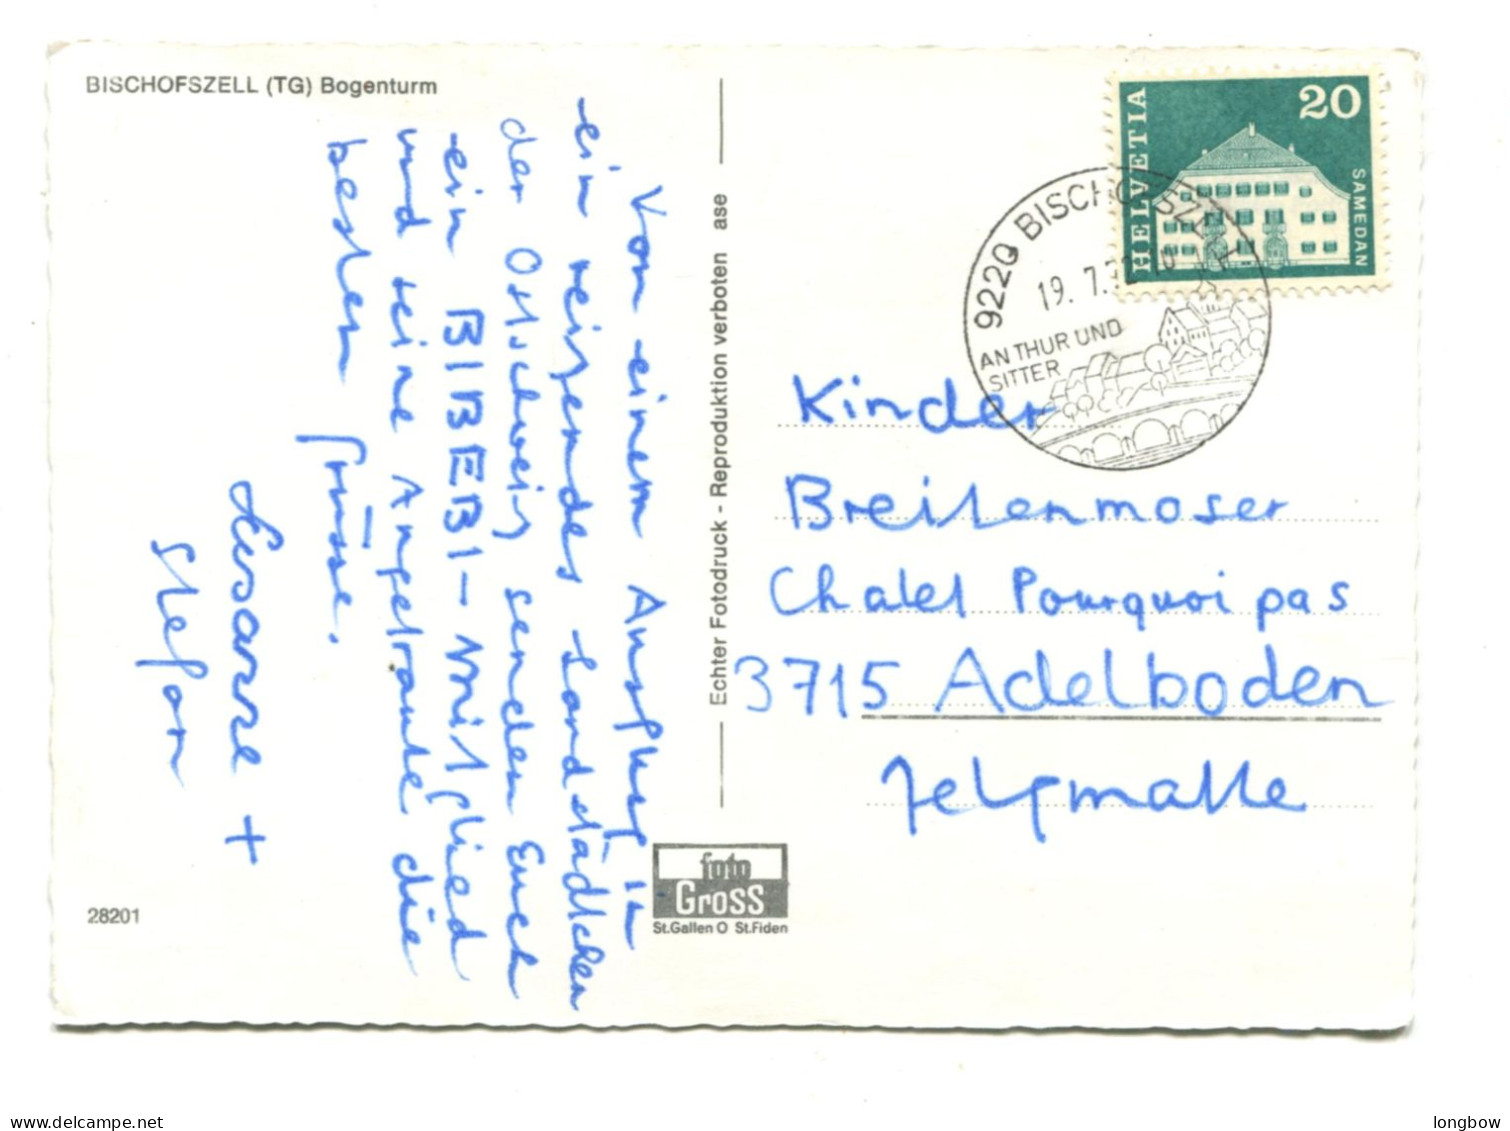 BISCHOFSZELL (TG) Bogenturm
Von einem Ausflug in
ein reizendes Landstädtchen
der Ostschweiz senden Euch
ein BIBEBI-Mitglied
und seine Angetraute die
besten Grüsse.
Susanne +
Stefan
28201
Echter Fotodruck - Reproduktion verboten ase
foto
Gross
St.Gallen O St.Fiden
HELVETIA
20
SAMEDAN
9220 BISCHOFSZELL
19. 7.
AN THUR UND
SITTER
Kinder
Breitenmoser
Chalet Pourquoi pas
3715 Adelboden
delcampe.net
longbow